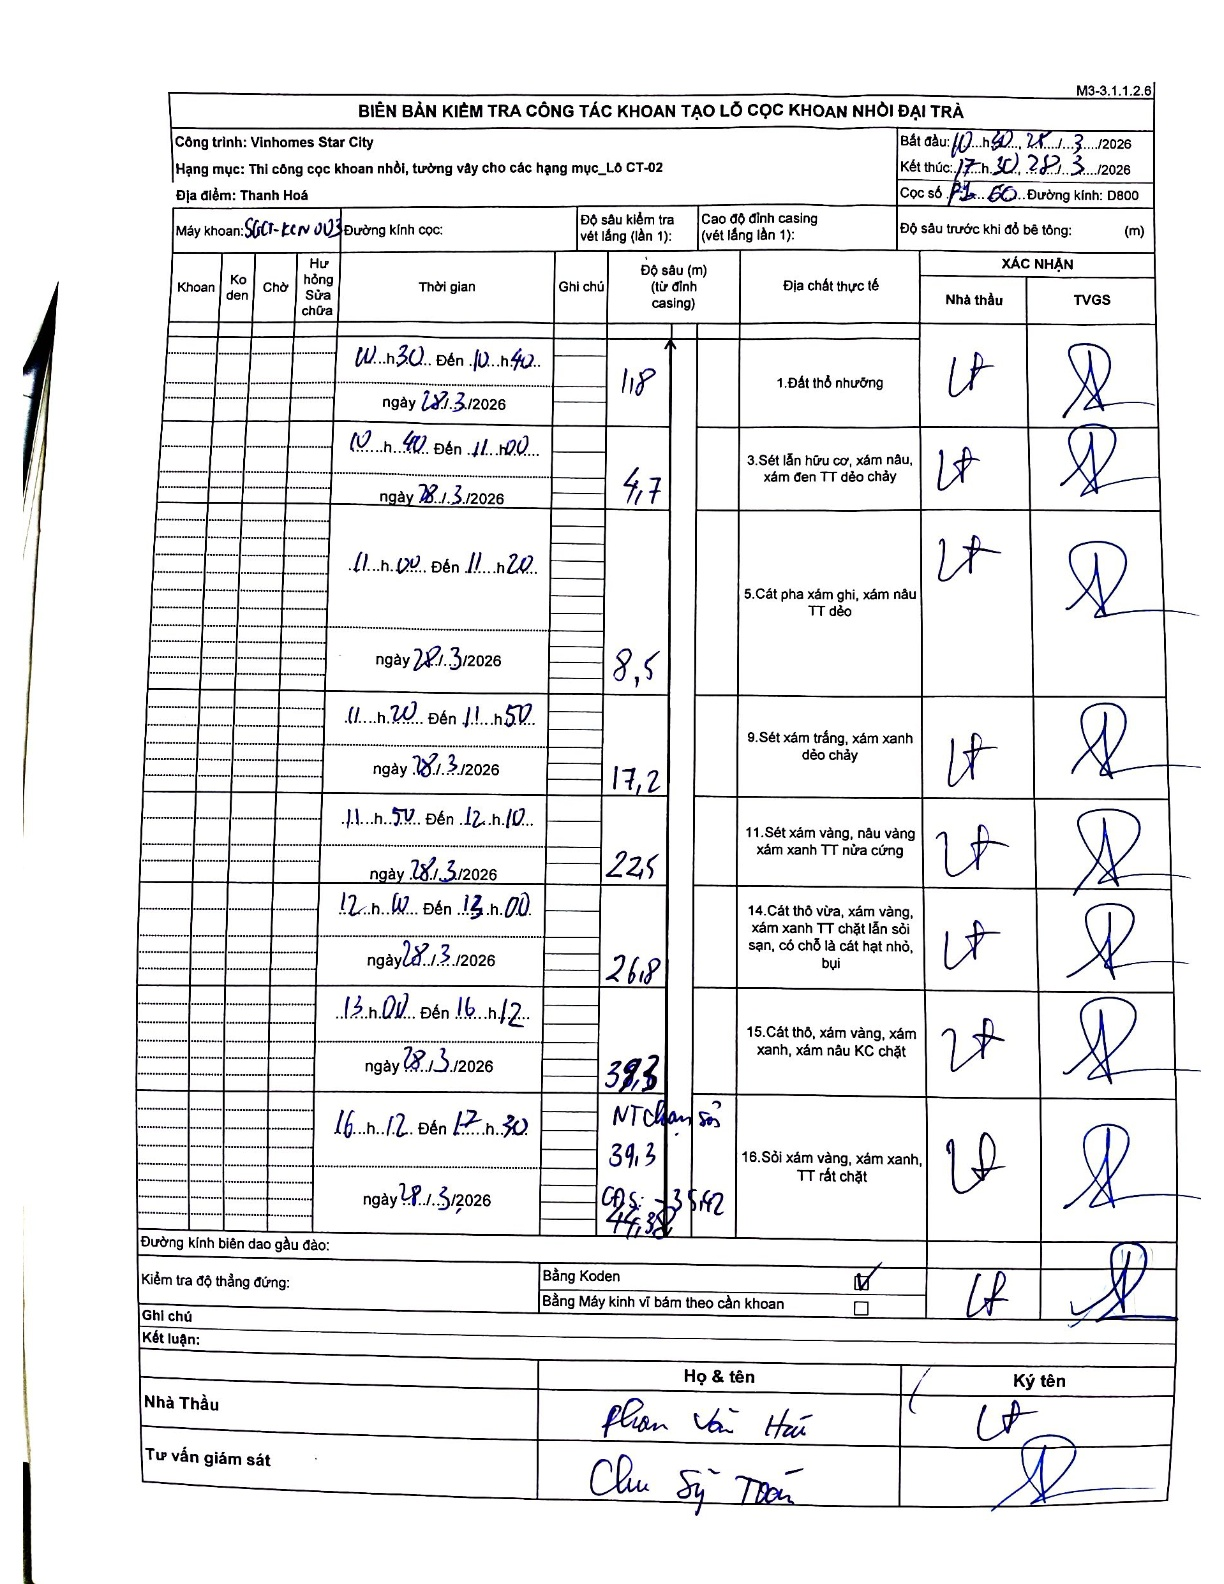 M3-3.1.1.2.6
BIÊN BẢN KIỂM TRA CÔNG TÁC KHOAN TẠO LỖ CỌC KHOAN NHỒI ĐẠI TRÀ
Công trình: Vinhomes Star City
Bắt đầu: 10 h 30, 28/3/2026
Hạng mục: Thi công cọc khoan nhồi, tường vây cho các hạng mục_Lô CT-02
Kết thúc: 17 h 30, 28/3/2026
Địa điểm: Thanh Hoá
Cọc số P1 60 Đường kính: D800
Máy khoan: Đường kính cọc:
Độ sâu kiểm tra vét lắng (lần 1):
Cao độ đỉnh casing (vét lắng lần 1):
Độ sâu trước khi đổ bê tông: (m)
Khoan
Ko den
Chờ
Hư hỏng Sửa chữa
Thời gian
Ghi chú
Độ sâu (m) (từ đỉnh casing)
Địa chất thực tế
XÁC NHẬN
Nhà thầu
TVGS
10 h 30 Đến 10 h 40
ngày 28/3/2026
1,8
1.Đất thổ nhưỡng
10 h 40 Đến 11 h 00
ngày 28/3/2026
4,7
3.Sét lẫn hữu cơ, xám nâu,
xám đen TT dẻo chảy
11 h 00 Đến 11 h 20
ngày 28/3/2026
8,5
5.Cát pha xám ghi, xám nâu
TT dẻo
11 h 20 Đến 11 h 50
ngày 28/3/2026
17,2
9.Sét xám trắng, xám xanh
dẻo chảy
11 h 50 Đến 12 h 10
ngày 28/3/2026
22,5
11.Sét xám vàng, nâu vàng
xám xanh TT nửa cứng
12 h 10 Đến 13 h 00
ngày 28/3/2026
26,8
14.Cát thô vừa, xám vàng,
xám xanh TT chặt lẫn sỏi
sạn, có chỗ là cát hạt nhỏ,
bụi
13 h 00 Đến 16 h 12
ngày 28/3/2026
39,3
15.Cát thô, xám vàng, xám
xanh, xám nâu KC chặt
16 h 12 Đến 17 h 30
ngày 28/3/2026
NT chạm sỏi
39,3
16.Sỏi xám vàng, xám xanh,
TT rất chặt
Đường kính biên dao gầu đào:
Kiểm tra độ thẳng đứng:
Bằng Koden
Bằng Máy kinh vĩ bám theo cần khoan
Ghi chú
Kết luận:
Họ & tên
Ký tên
Nhà Thầu
Phan Văn
Tư vấn giám sát
Chu Sỹ